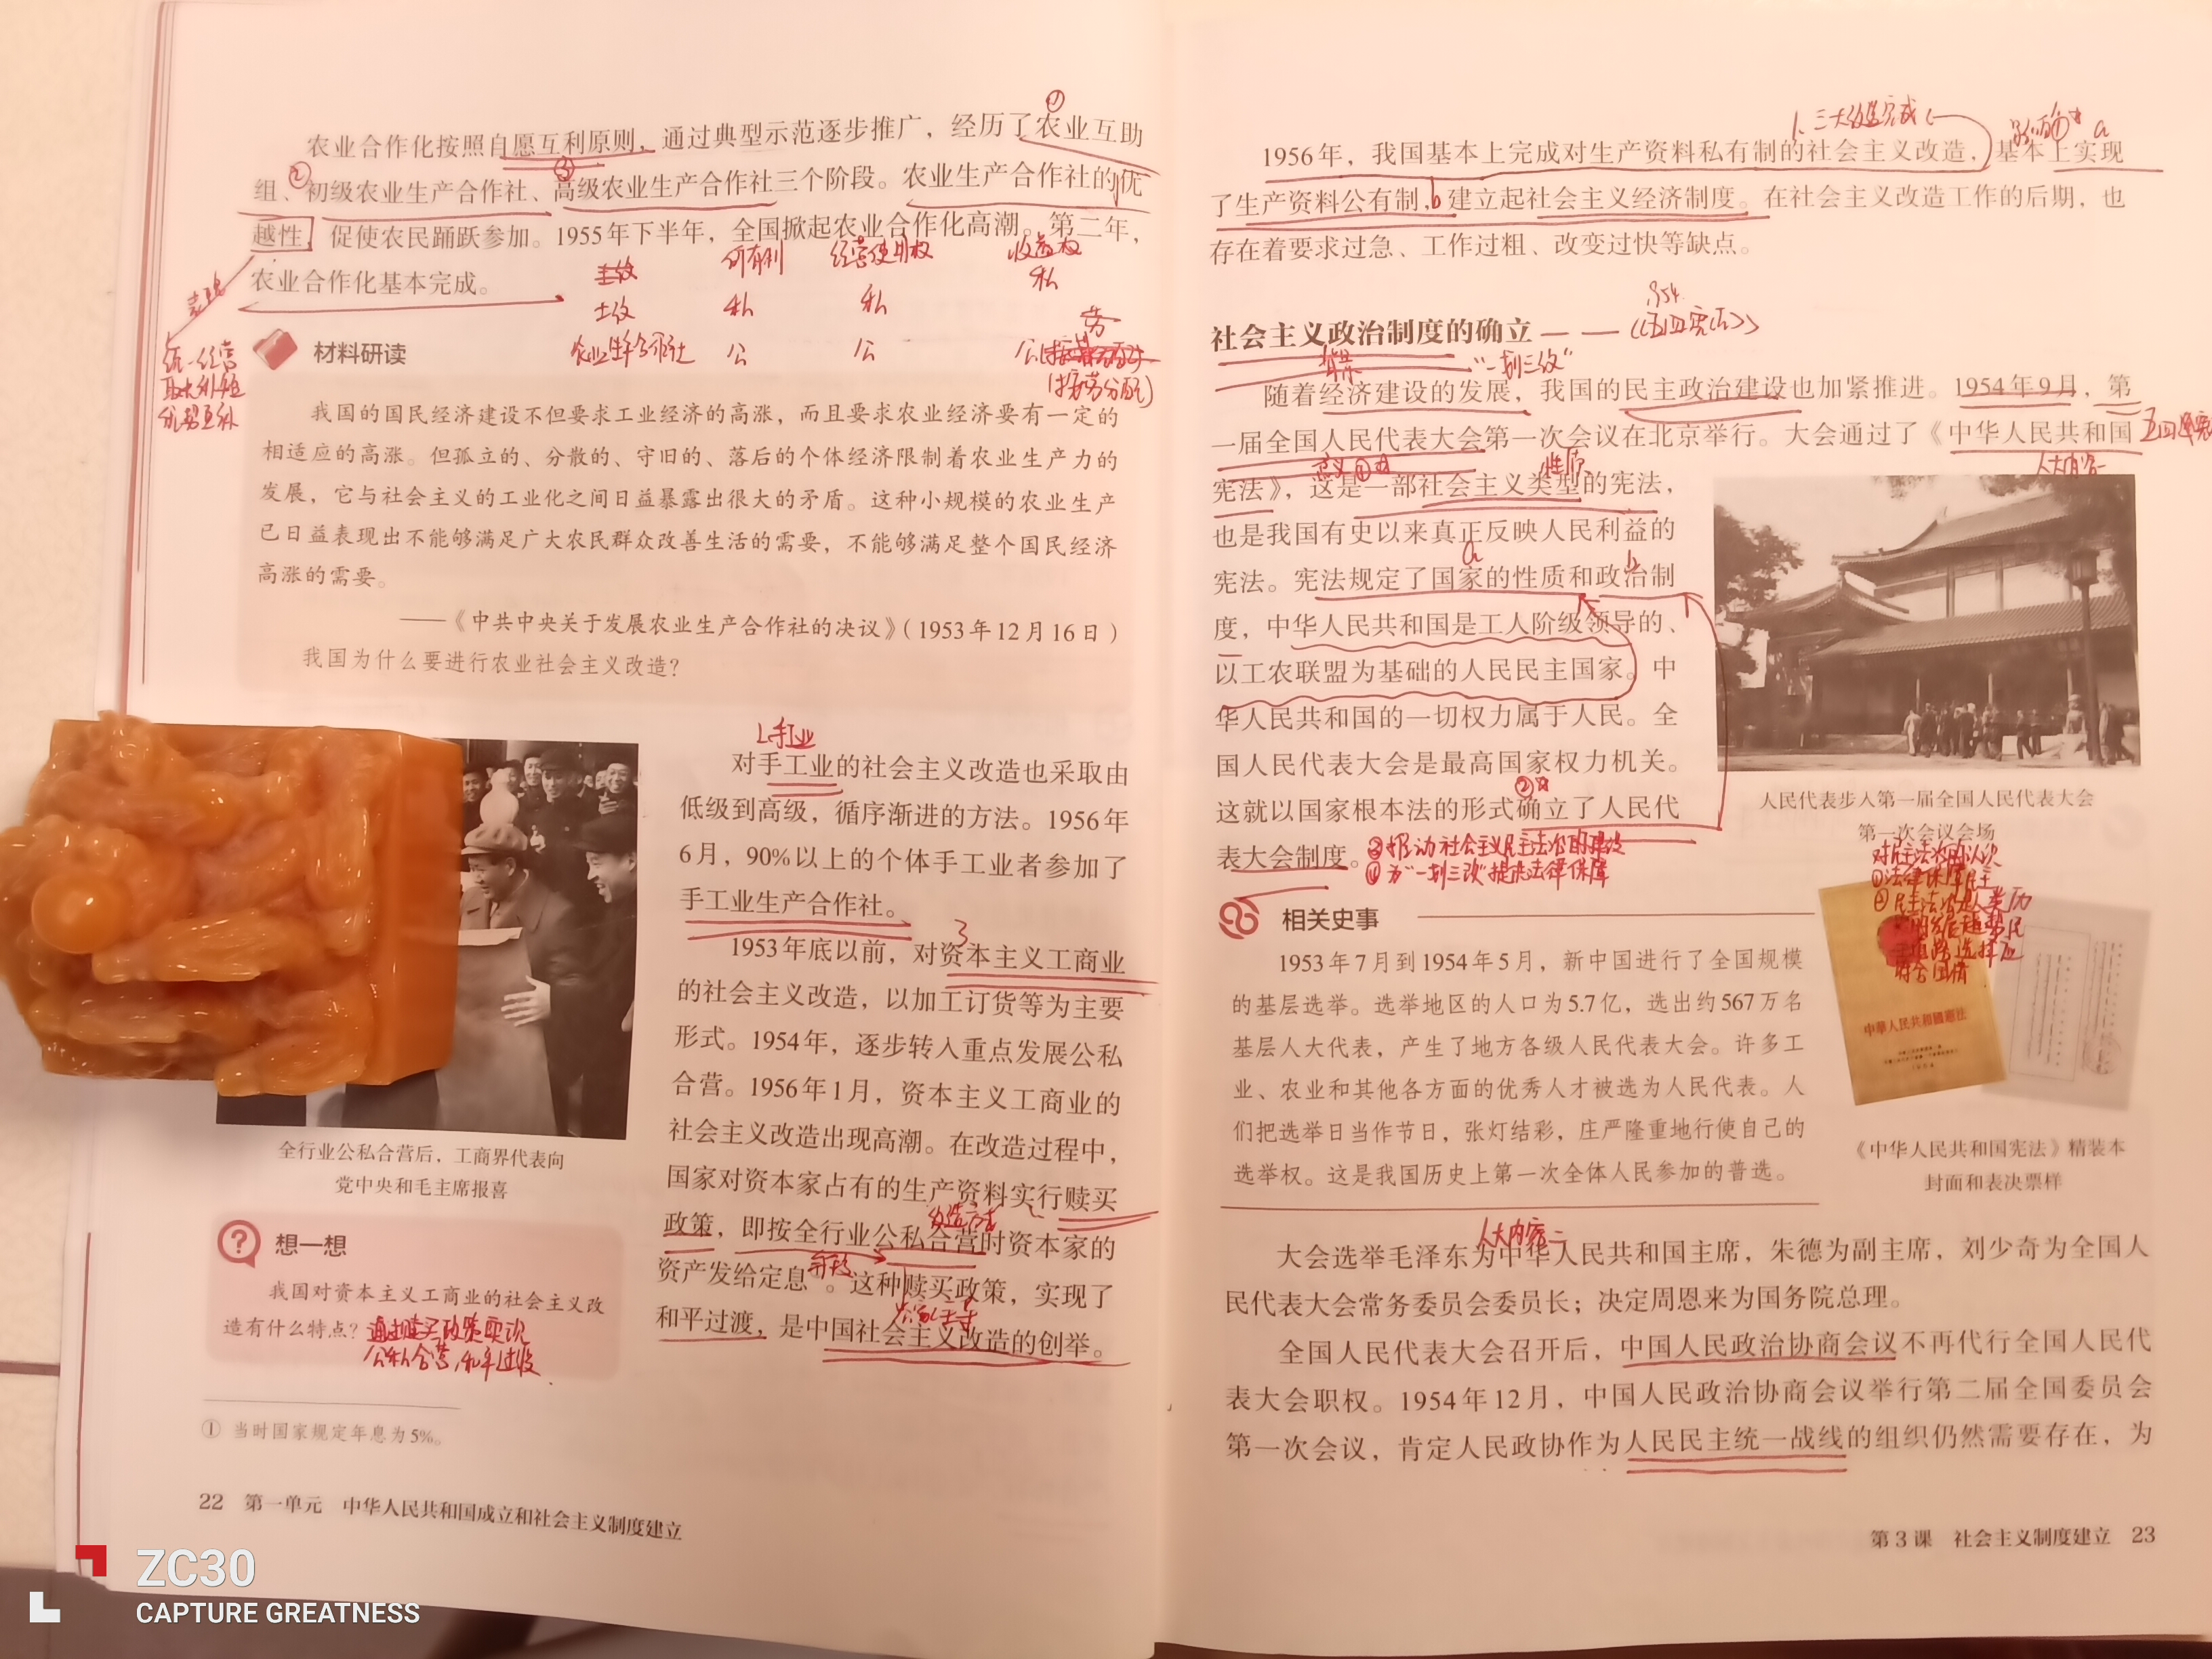 农业合作化按照自愿互利原则，通过典型示范逐步推广，经历了农业互助
组、初级农业生产合作社、高级农业生产合作社三个阶段。农业生产合作社的优
越性，促使农民踊跃参加。1955年下半年，全国掀起农业合作化高潮。第二年，
农业合作化基本完成。
① ② ③
所有制 经营使用权 收益权
土改 私 私 私
农业生产合作社 公 公 公
(按劳分配)
统一经营
取长补短
优势互补
材料研读
我国的国民经济建设不但要求工业经济的高涨，而且要求农业经济要有一定的
相适应的高涨。但孤立的、分散的、守旧的、落后的个体经济限制着农业生产力的
发展，它与社会主义的工业化之间日益暴露出很大的矛盾。这种小规模的农业生产
已日益表现出不能够满足广大农民群众改善生活的需要，不能够满足整个国民经济
高涨的需要。
——《中共中央关于发展农业生产合作社的决议》（1953年12月16日）
我国为什么要进行农业社会主义改造？
2.手工业
对手工业的社会主义改造也采取由
低级到高级，循序渐进的方法。1956年
6月，90%以上的个体手工业者参加了
手工业生产合作社。
3
1953年底以前，对资本主义工商业
的社会主义改造，以加工订货等为主要
形式。1954年，逐步转入重点发展公私
合营。1956年1月，资本主义工商业的
社会主义改造出现高潮。在改造过程中，
国家对资本家占有的生产资料实行赎买
政策，即按全行业公私合营时资本家的
资产发给定息①。这种赎买政策，实现了
和平过渡，是中国社会主义改造的创举。
全行业公私合营后，工商界代表向
党中央和毛主席报喜
想一想
我国对资本主义工商业的社会主义改
造有什么特点？
通过赎买政策实现
公私合营，和平过渡
① 当时国家规定年息为5%。
22 第一单元 中华人民共和国成立和社会主义制度建立
1、三大改造完成
1956年，我国基本上完成对生产资料私有制的社会主义改造，基本上实现
了生产资料公有制，建立起社会主义经济制度。在社会主义改造工作的后期，也
存在着要求过急、工作过粗、改变过快等缺点。
a
b
社会主义政治制度的确立
1954
《五四宪法》
背景 "一划三改"
随着经济建设的发展，我国的民主政治建设也加紧推进。1954年9月，第
一届全国人民代表大会第一次会议在北京举行。大会通过了《中华人民共和国
宪法》，这是一部社会主义类型的宪法，
也是我国有史以来真正反映人民利益的
宪法。宪法规定了国家的性质和政治制
度，中华人民共和国是工人阶级领导的、
以工农联盟为基础的人民民主国家。中
华人民共和国的一切权力属于人民。全
国人民代表大会是最高国家权力机关。
这就以国家根本法的形式确立了人民代
表大会制度。
人大内容一
意义①
性质
a
b
②
③推动社会主义民主法治的建设
④为"一划三改"提供法律保障
人民代表步入第一届全国人民代表大会
第一次会议会场
对民主法治的认识
①法律保障民主
中華人民共和國憲法
《中华人民共和国宪法》精装本
封面和表决票样
相关史事
1953年7月到1954年5月，新中国进行了全国规模
的基层选举。选举地区的人口为5.7亿，选出约567万名
基层人大代表，产生了地方各级人民代表大会。许多工
业、农业和其他各方面的优秀人才被选为人民代表。人
们把选举日当作节日，张灯结彩，庄严隆重地行使自己的
选举权。这是我国历史上第一次全体人民参加的普选。
人大内容二
大会选举毛泽东为中华人民共和国主席，朱德为副主席，刘少奇为全国人
民代表大会常务委员会委员长；决定周恩来为国务院总理。
全国人民代表大会召开后，中国人民政治协商会议不再代行全国人民代
表大会职权。1954年12月，中国人民政治协商会议举行第二届全国委员会
第一次会议，肯定人民政协作为人民民主统一战线的组织仍然需要存在，为
第3课 社会主义制度建立 23
ZC30
CAPTURE GREATNESS